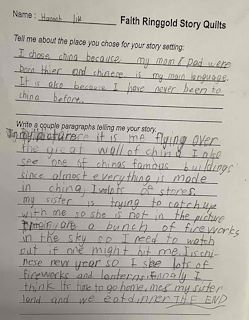 Name: Hannah
Faith Ringgold Story Quilts
Tell me about the place you chose for your story setting:
I chose china because my mom & Dad were
born thier and chinese is my main language.
It is also because I have never been to
china before.
Write a couple paragraphs telling me your story.
In my picture it is me flying over
the great wall of china I also
see one of chinas famous buildings
since almost everything is made
in china, I see lots of stores.
my sister is trying to catch up
with me so she is not in the picture
there are a bunch of fireworks
in the sky so I need to watch
out it one might hit me. It's chi-
nese new year so I see lots of
fireworks and lanterns finally I
think its time to go home. me & my sister
land and we eat dinner THE END